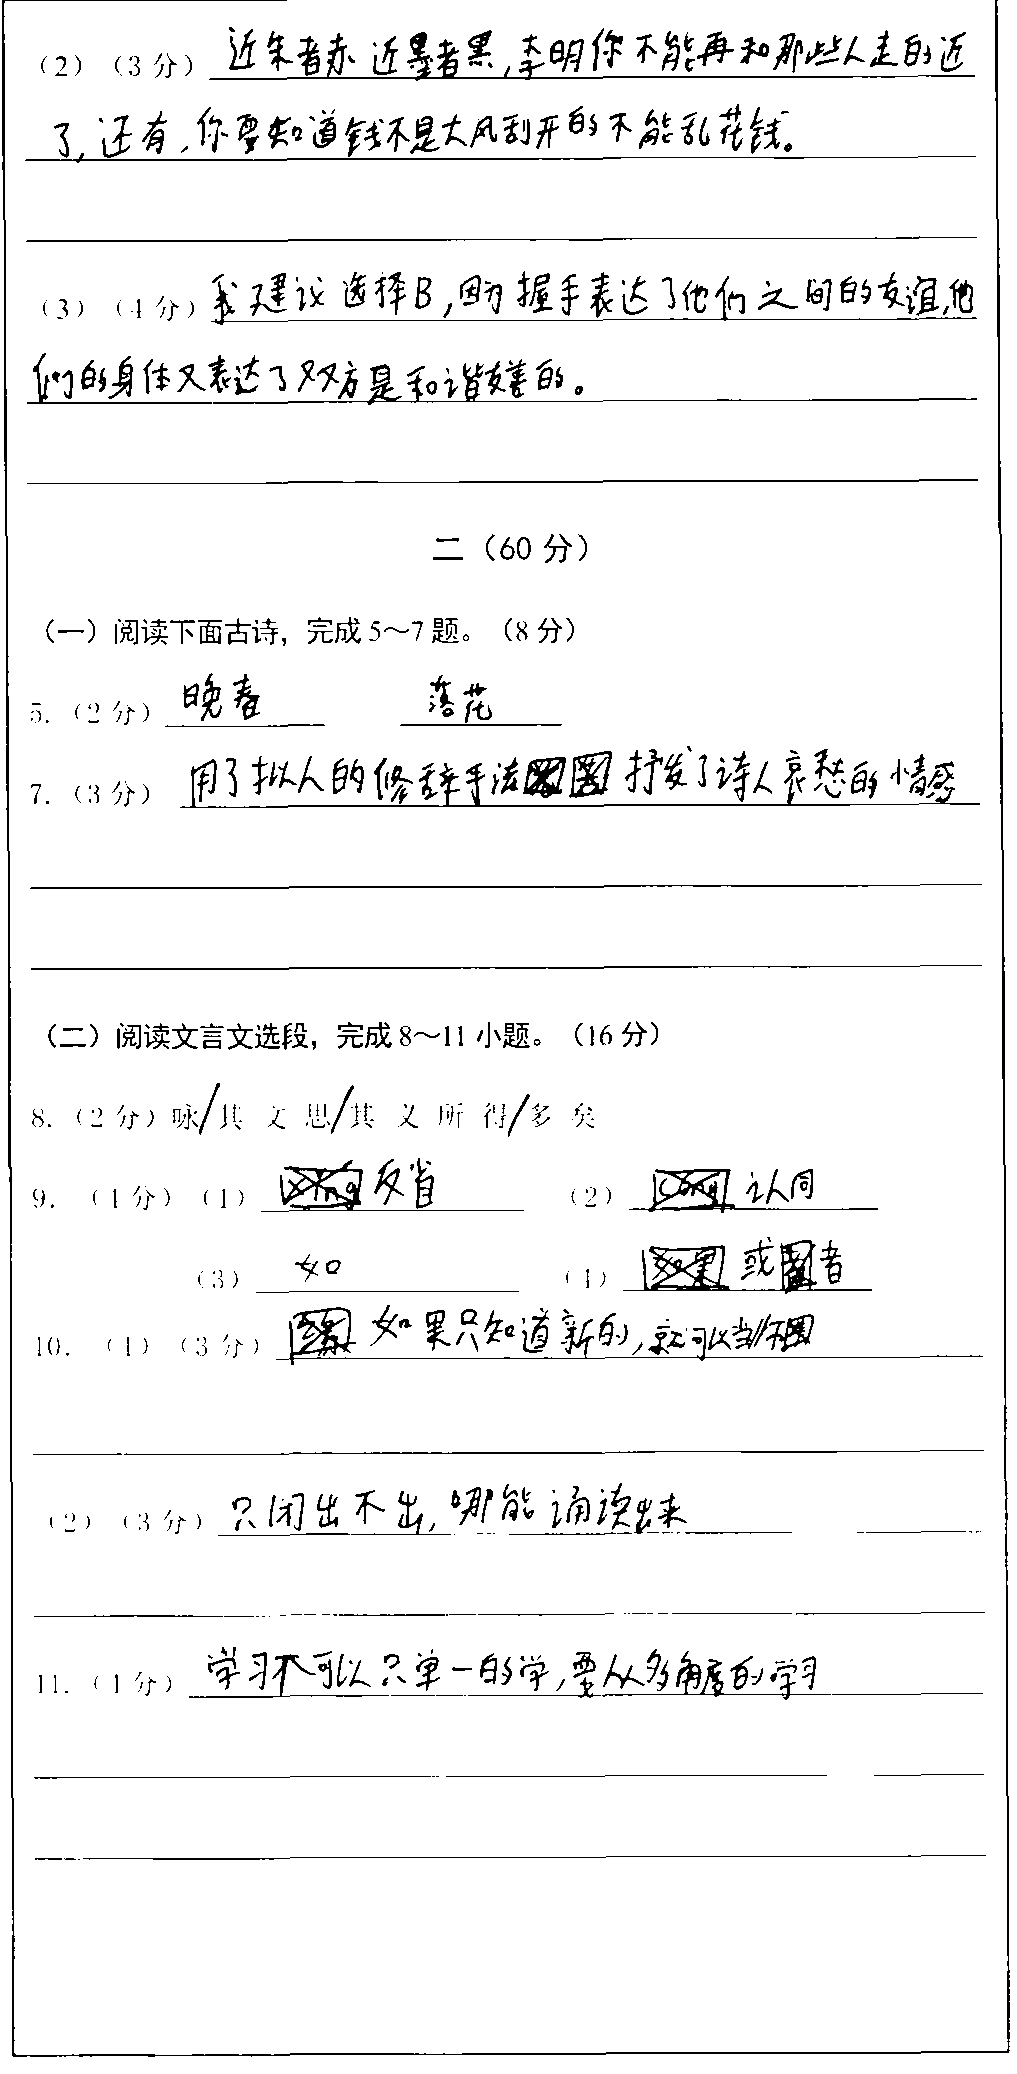 （2）（3分）近朱者赤 近墨者黑，李明你不能再和那些人走的近
了，还有，你要知道钱不是大风刮开的不能乱花钱。
（3）（4分）我建议选择B，因为握手表达了他们之间的友谊，他
们的身体又表达了双方是和谐友善的。
二（60分）
（一）阅读下面古诗，完成5～7题。（8分）
5.（2分）晚春 落花
7.（3分）用了拟人的修辞手法 抒发了诗人哀愁的情感
（二）阅读文言文选段，完成8～11小题。（16分）
8.（2分）咏/其 文 思/其 义 所 得/多 矣
9.（4分）（1）反省 （2）认同
（3）如 （4）或者
10.（1）（3分）如果只知道新的，就可以当
（2）（3分）只闭出不出，哪能诵读出来
11.（4分）学习不可以只单一的学，要从多角度的学习